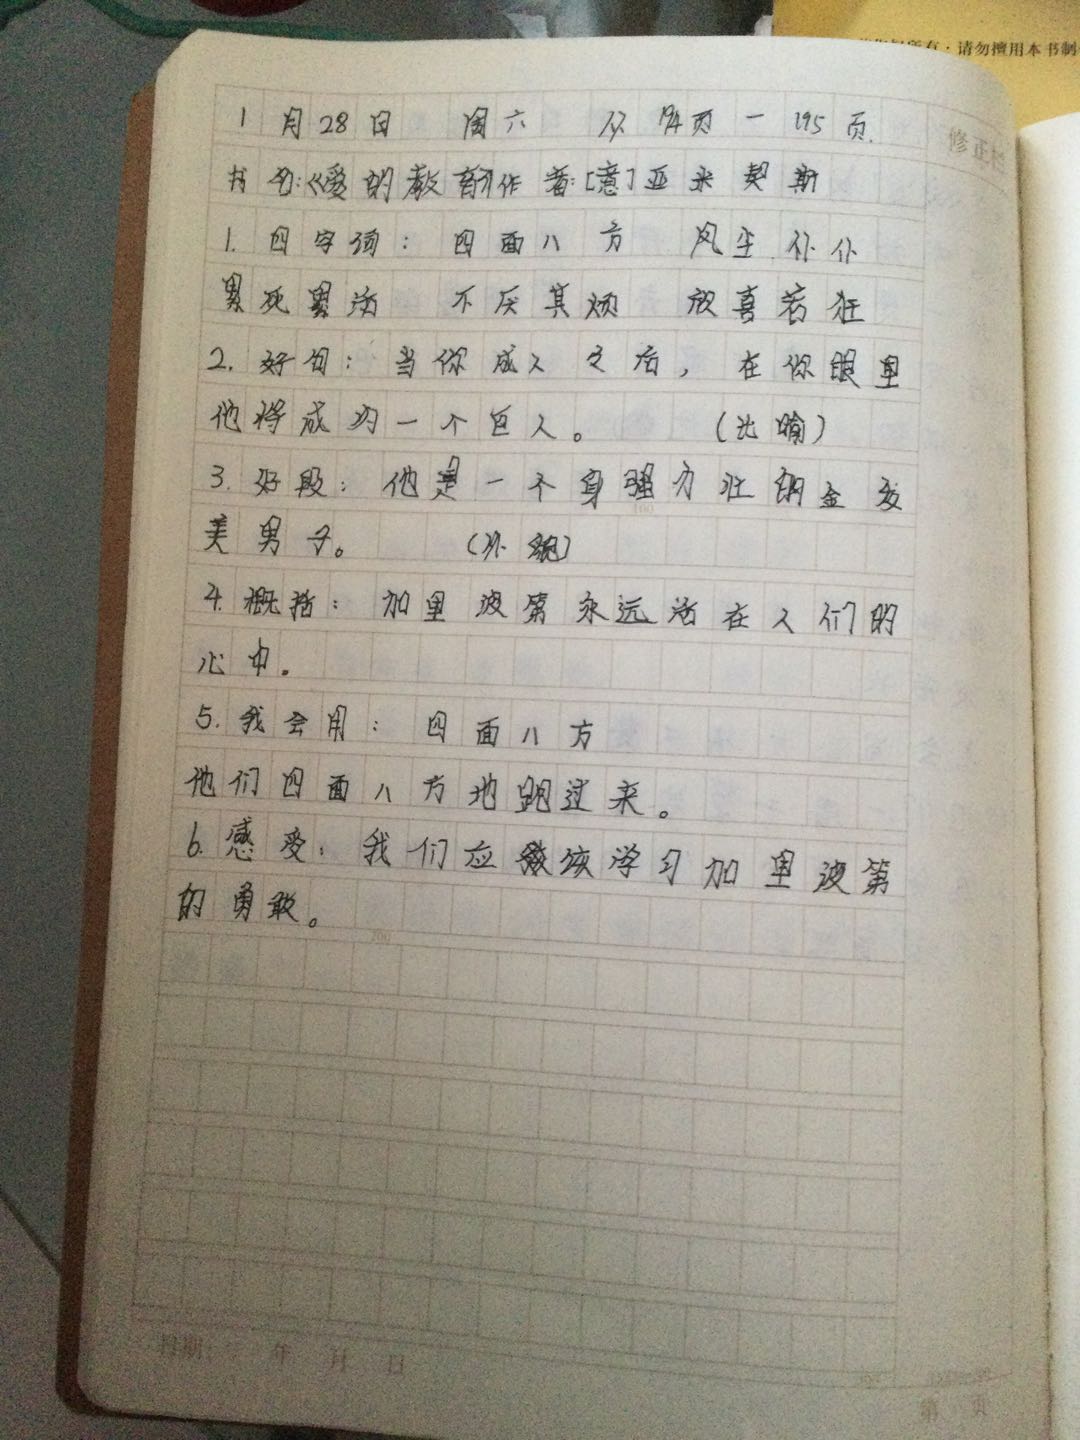 所有·请勿擅用本书制
1月28日 周六 从194页一195页.
修正
书名:《爱的教育》作者:[意]亚米契斯
1.四字词:四面八方 风尘仆仆
累死累活 不厌其烦 放喜若狂
2.好句:当你成人之后,在你眼里
他将成为一个巨人。 (比喻)
3.好段:他是一个身强力壮的金发
美男子。 (外貌)
4.概括:加里波第永远活在人们的
心中.
100
5.我会用:四面八方
他们四面八方地跑过来。
6.感受:我们应该学习加里波第
的勇敢。
200
日期: 年 月 日
第 页